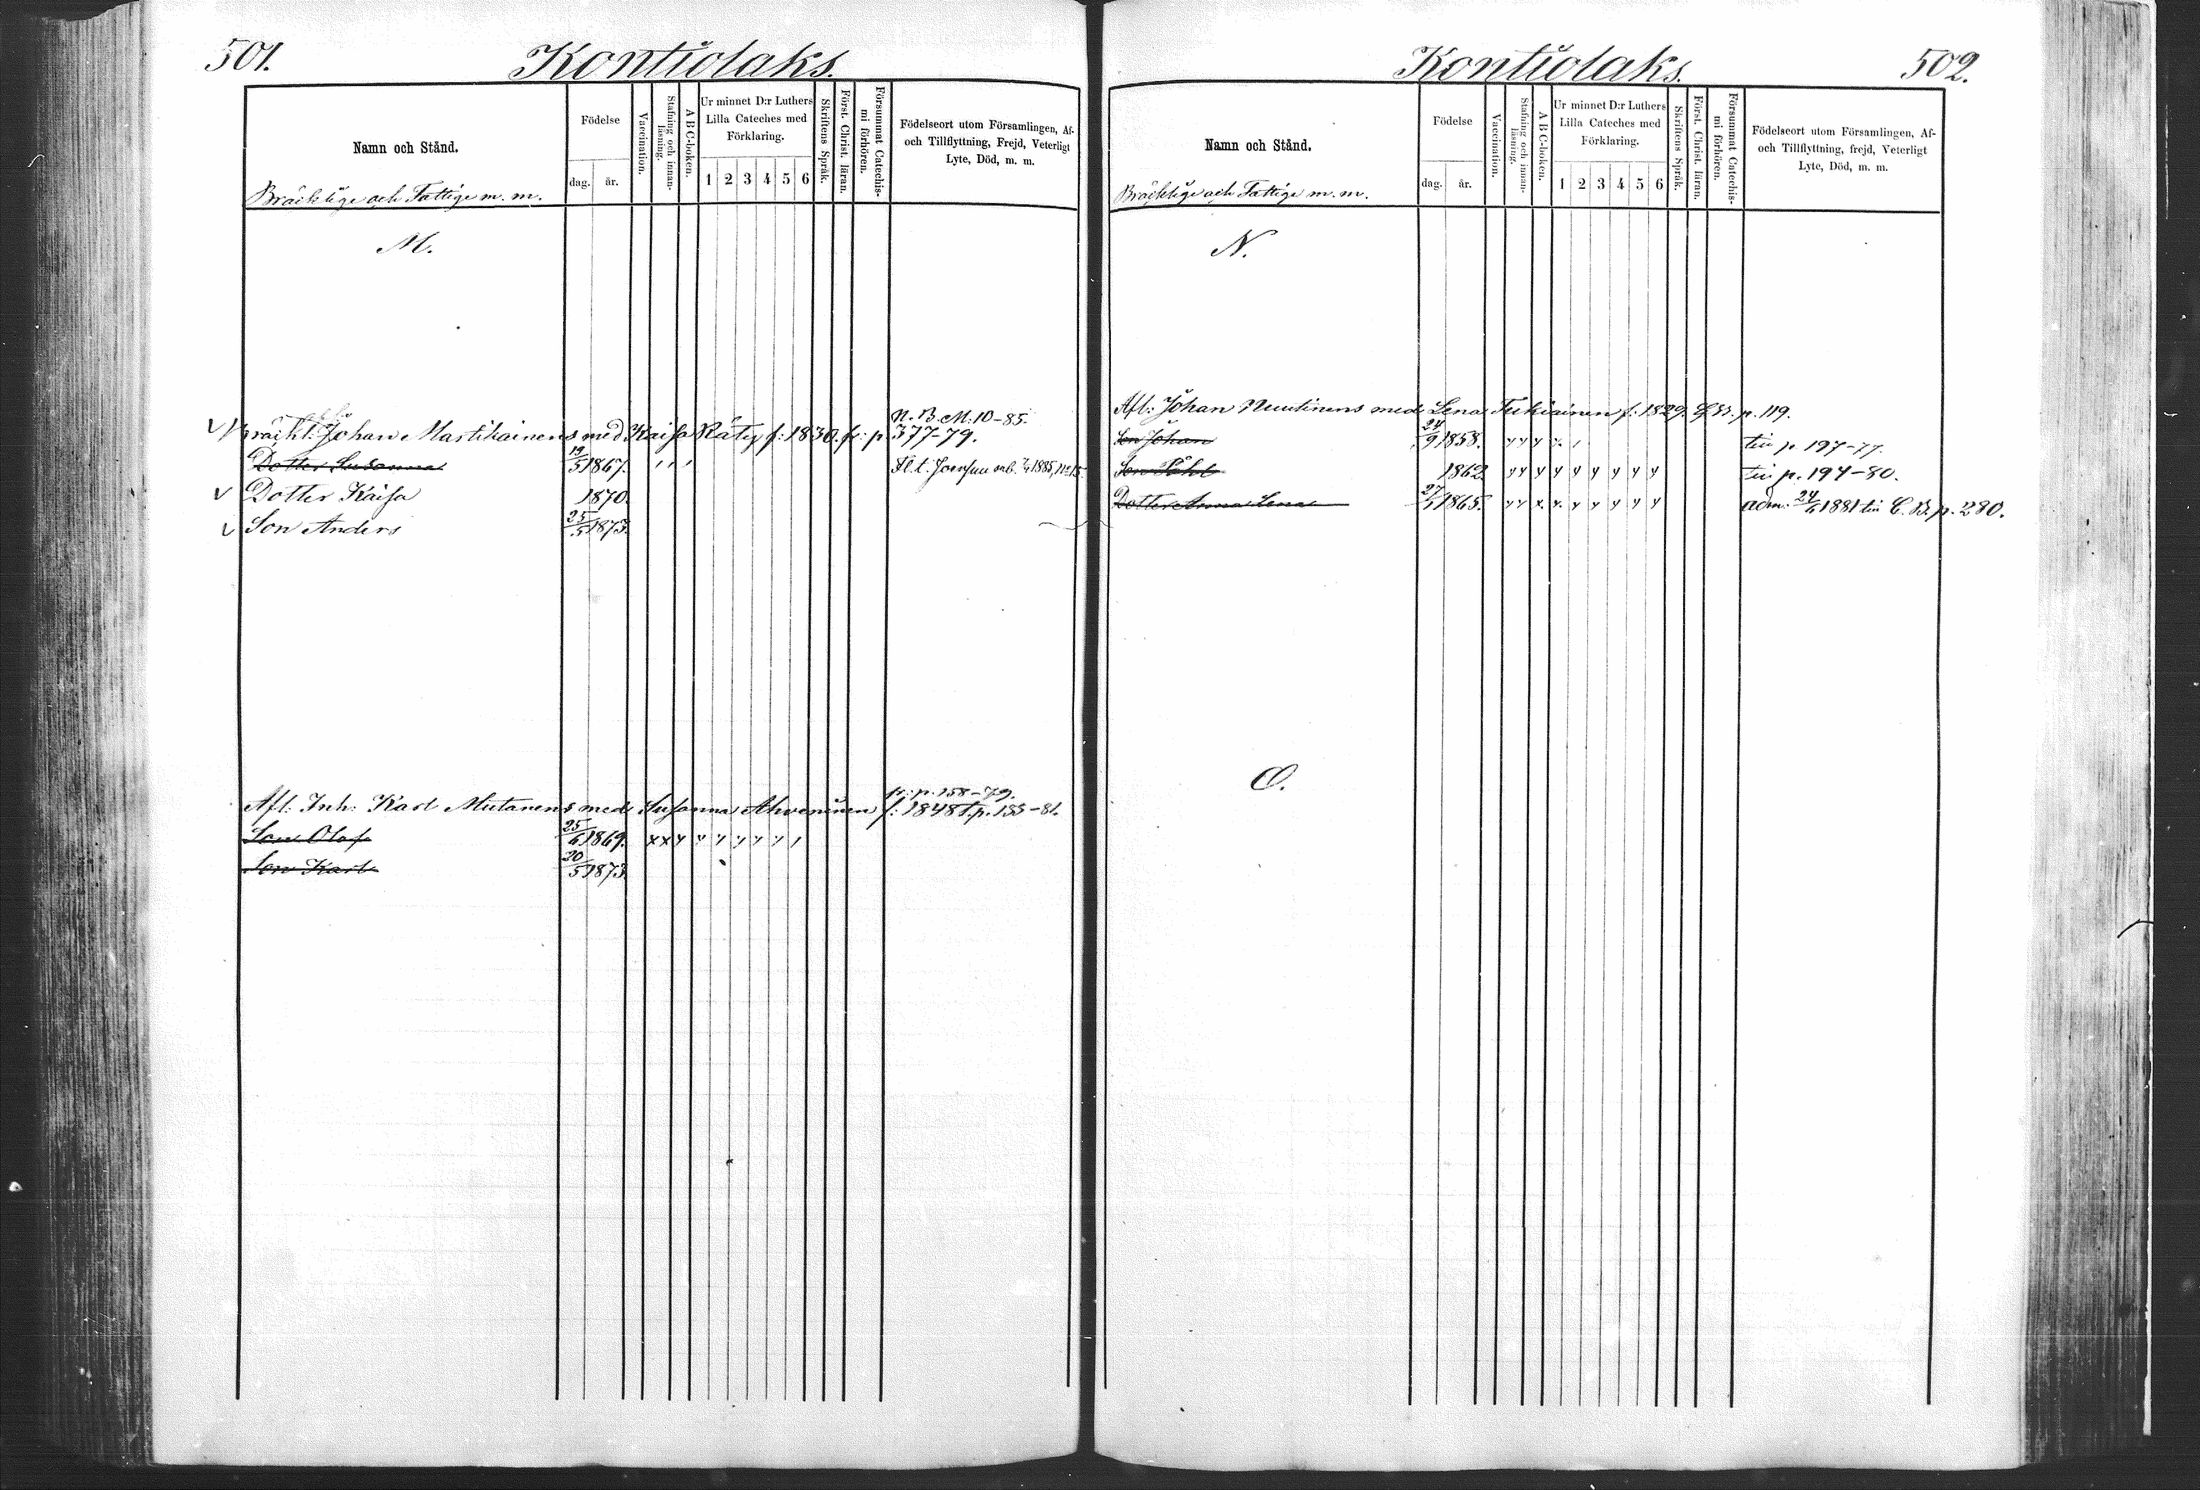 501.
Kontiolaks.
Namn och Stånd.
Födelse
dag. år.
Vaccination.
Stafning och innan-läsning.
A B C-boken.
Ur minnet D:r Luthers
Lilla Cateches med
Förklaring.
1 2 3 4 5 6
Skriftens Språk.
Först. Christ. läran.
Försummat Catechis-mi förhören.
Födelseort utom Församlingen, Af-
och Tillflyttning, Frejd, Veterligt
Lyte, Död, m. m.
Bräcklige och Fattige m. m.
M.
N. B. M: 10-85.
Bräckl: Johan Martikainens med Kaisa Räty f: 1830. fr: p. 377-79.
Dotter Susanna 19/5 1867.
Dotter Kaisa 1870.
Son Anders 25/5 1873.
fr: p. 158-79.
Afl: Inh: Karl Mutanens med Susanna Ahveninen f: 1848 t. p. 155-81.
Son Olof 25/6 1869. x x y y y y y y
Son Karl 20/5 1873.
502.
Kontiolaks.
Namn och Stånd.
Födelse
dag. år.
Vaccination.
Stafning och innan-läsning.
A B C-boken.
Ur minnet D:r Luthers
Lilla Cateches med
Förklaring.
1 2 3 4 5 6
Skriftens Språk.
Först. Christ. läran.
Försummat Catechis-mi förhören.
Födelseort utom Församlingen, Af-
och Tillflyttning, frejd, Veterligt
Lyte, Död, m. m.
Bräcklige och Fattige m. m.
N.
Afl: Johan Nuutinens med Lena Tukiainen f: 1829. p. 119.
Son Johan 24/9 1858. y y y x till p. 197-77.
Son 1862 y y y y y y y y y till p. 194-80.
Dotter Anna Lena 27/5 1865. y y x x y y y y y adm: 1881 till C. B. p. 280.
O.